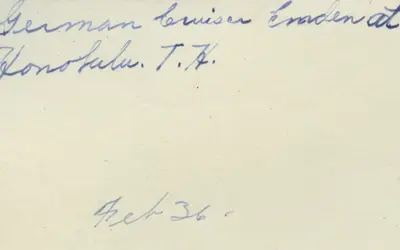 German Cruiser Emden at
Honolulu. T. H.
Feb 36.